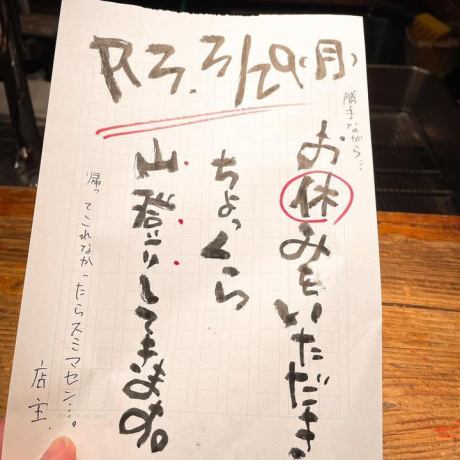 R3.3/29(月)
勝手ながら…
お休みをいただき、
ちょっくら
山登りしてきます。
帰ってこれなかったらスミマセン…。
店主.